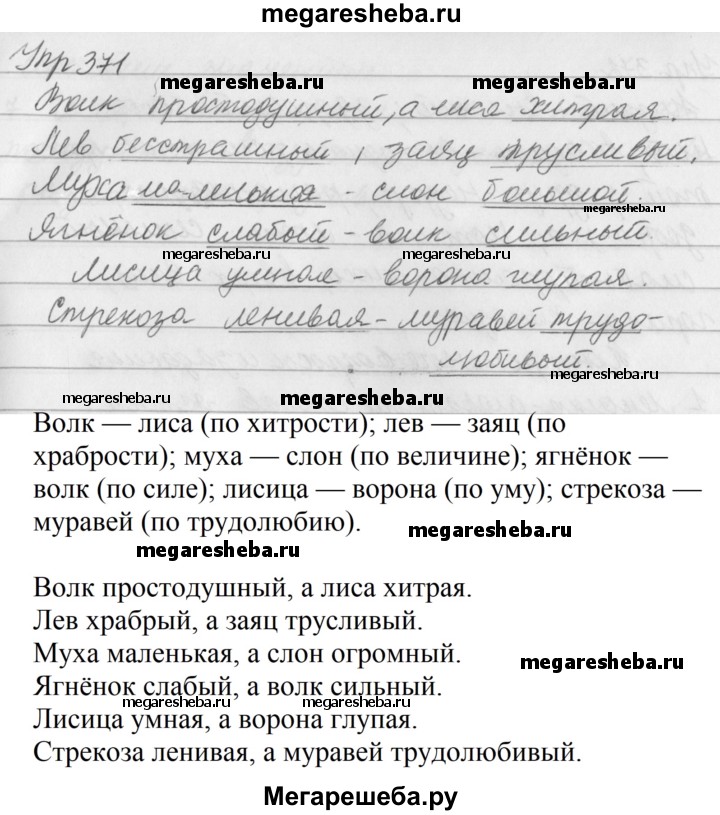 megaresheba.ru
Упр 371
megaresheba.ru megaresheba.ru
Волк простодушный, а лиса хитрая.
Лев бесстрашный, заяц трусливый.
megaresheba.ru
Муха маленькая - слон большой.
megaresheba.ru
Ягнёнок слабый - волк сильный.
megaresheba.ru megaresheba.ru
Лисица умная - ворона глупая.
Стрекоза ленивая - муравей трудо-
любивый.
megaresheba.ru
megaresheba.ru megaresheba.ru megaresheba.ru
Волк — лиса (по хитрости); лев — заяц (по
храбрости); муха — слон (по величине); ягнёнок —
волк (по силе); лисица — ворона (по уму); стрекоза —
муравей (по трудолюбию).
megaresheba.ru
megaresheba.ru
Волк простодушный, а лиса хитрая.
Лев храбрый, а заяц трусливый.
Муха маленькая, а слон огромный.
megaresheba.ru
Ягнёнок слабый, а волк сильный.
megaresheba.ru megaresheba.ru
Лисица умная, а ворона глупая.
Стрекоза ленивая, а муравей трудолюбивый.
Мегарешеба.ру